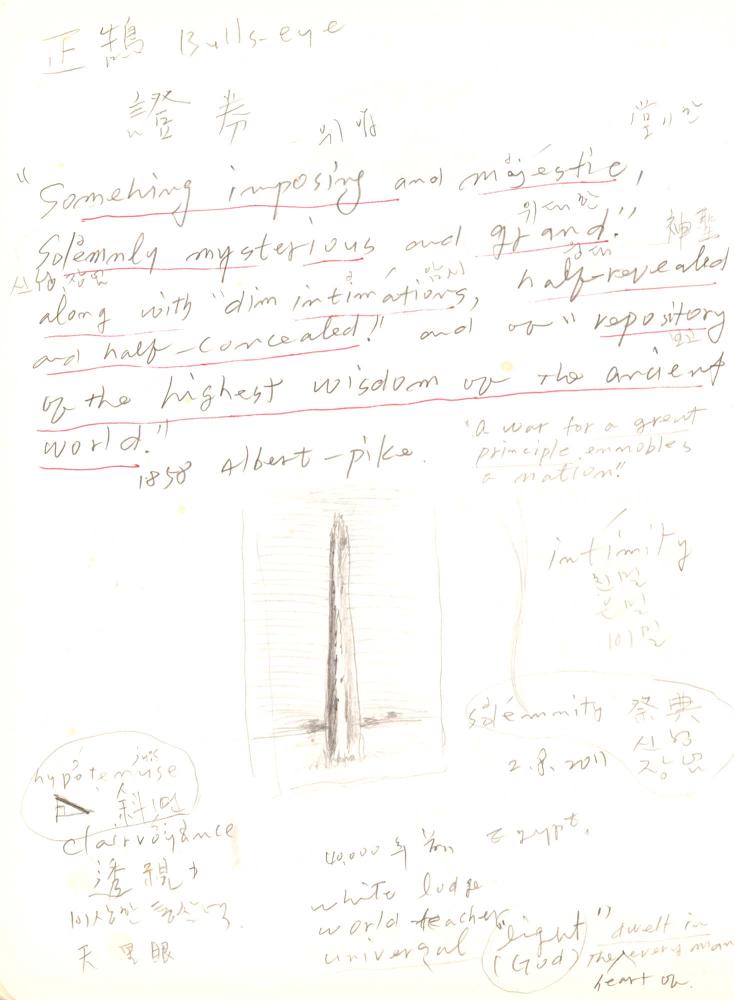 正鵠 Bulls-eye
證券
위엄
"Somehing imposing and majestic,
위대한
Solemnly mysterious and grand."
神聖
신성 장엄
암시
along with "dim intimations, half-revealed
and half-concealed!" and of "repository
of the highest wisdom of the ancient
world."
1858 Albert-pike.
"a war for a great
principle ennobles
a nation!"
intimity
친밀
은밀
비밀
solemnity 祭典
신성
장엄
2.8.2011
hypotenuse
斜面
clairvoyance
透視力
비상한 통찰력.
天里眼
40,000 Egypt.
white lodge
world teacher
universal "light" dwelt in
(God) the every man
heart of.